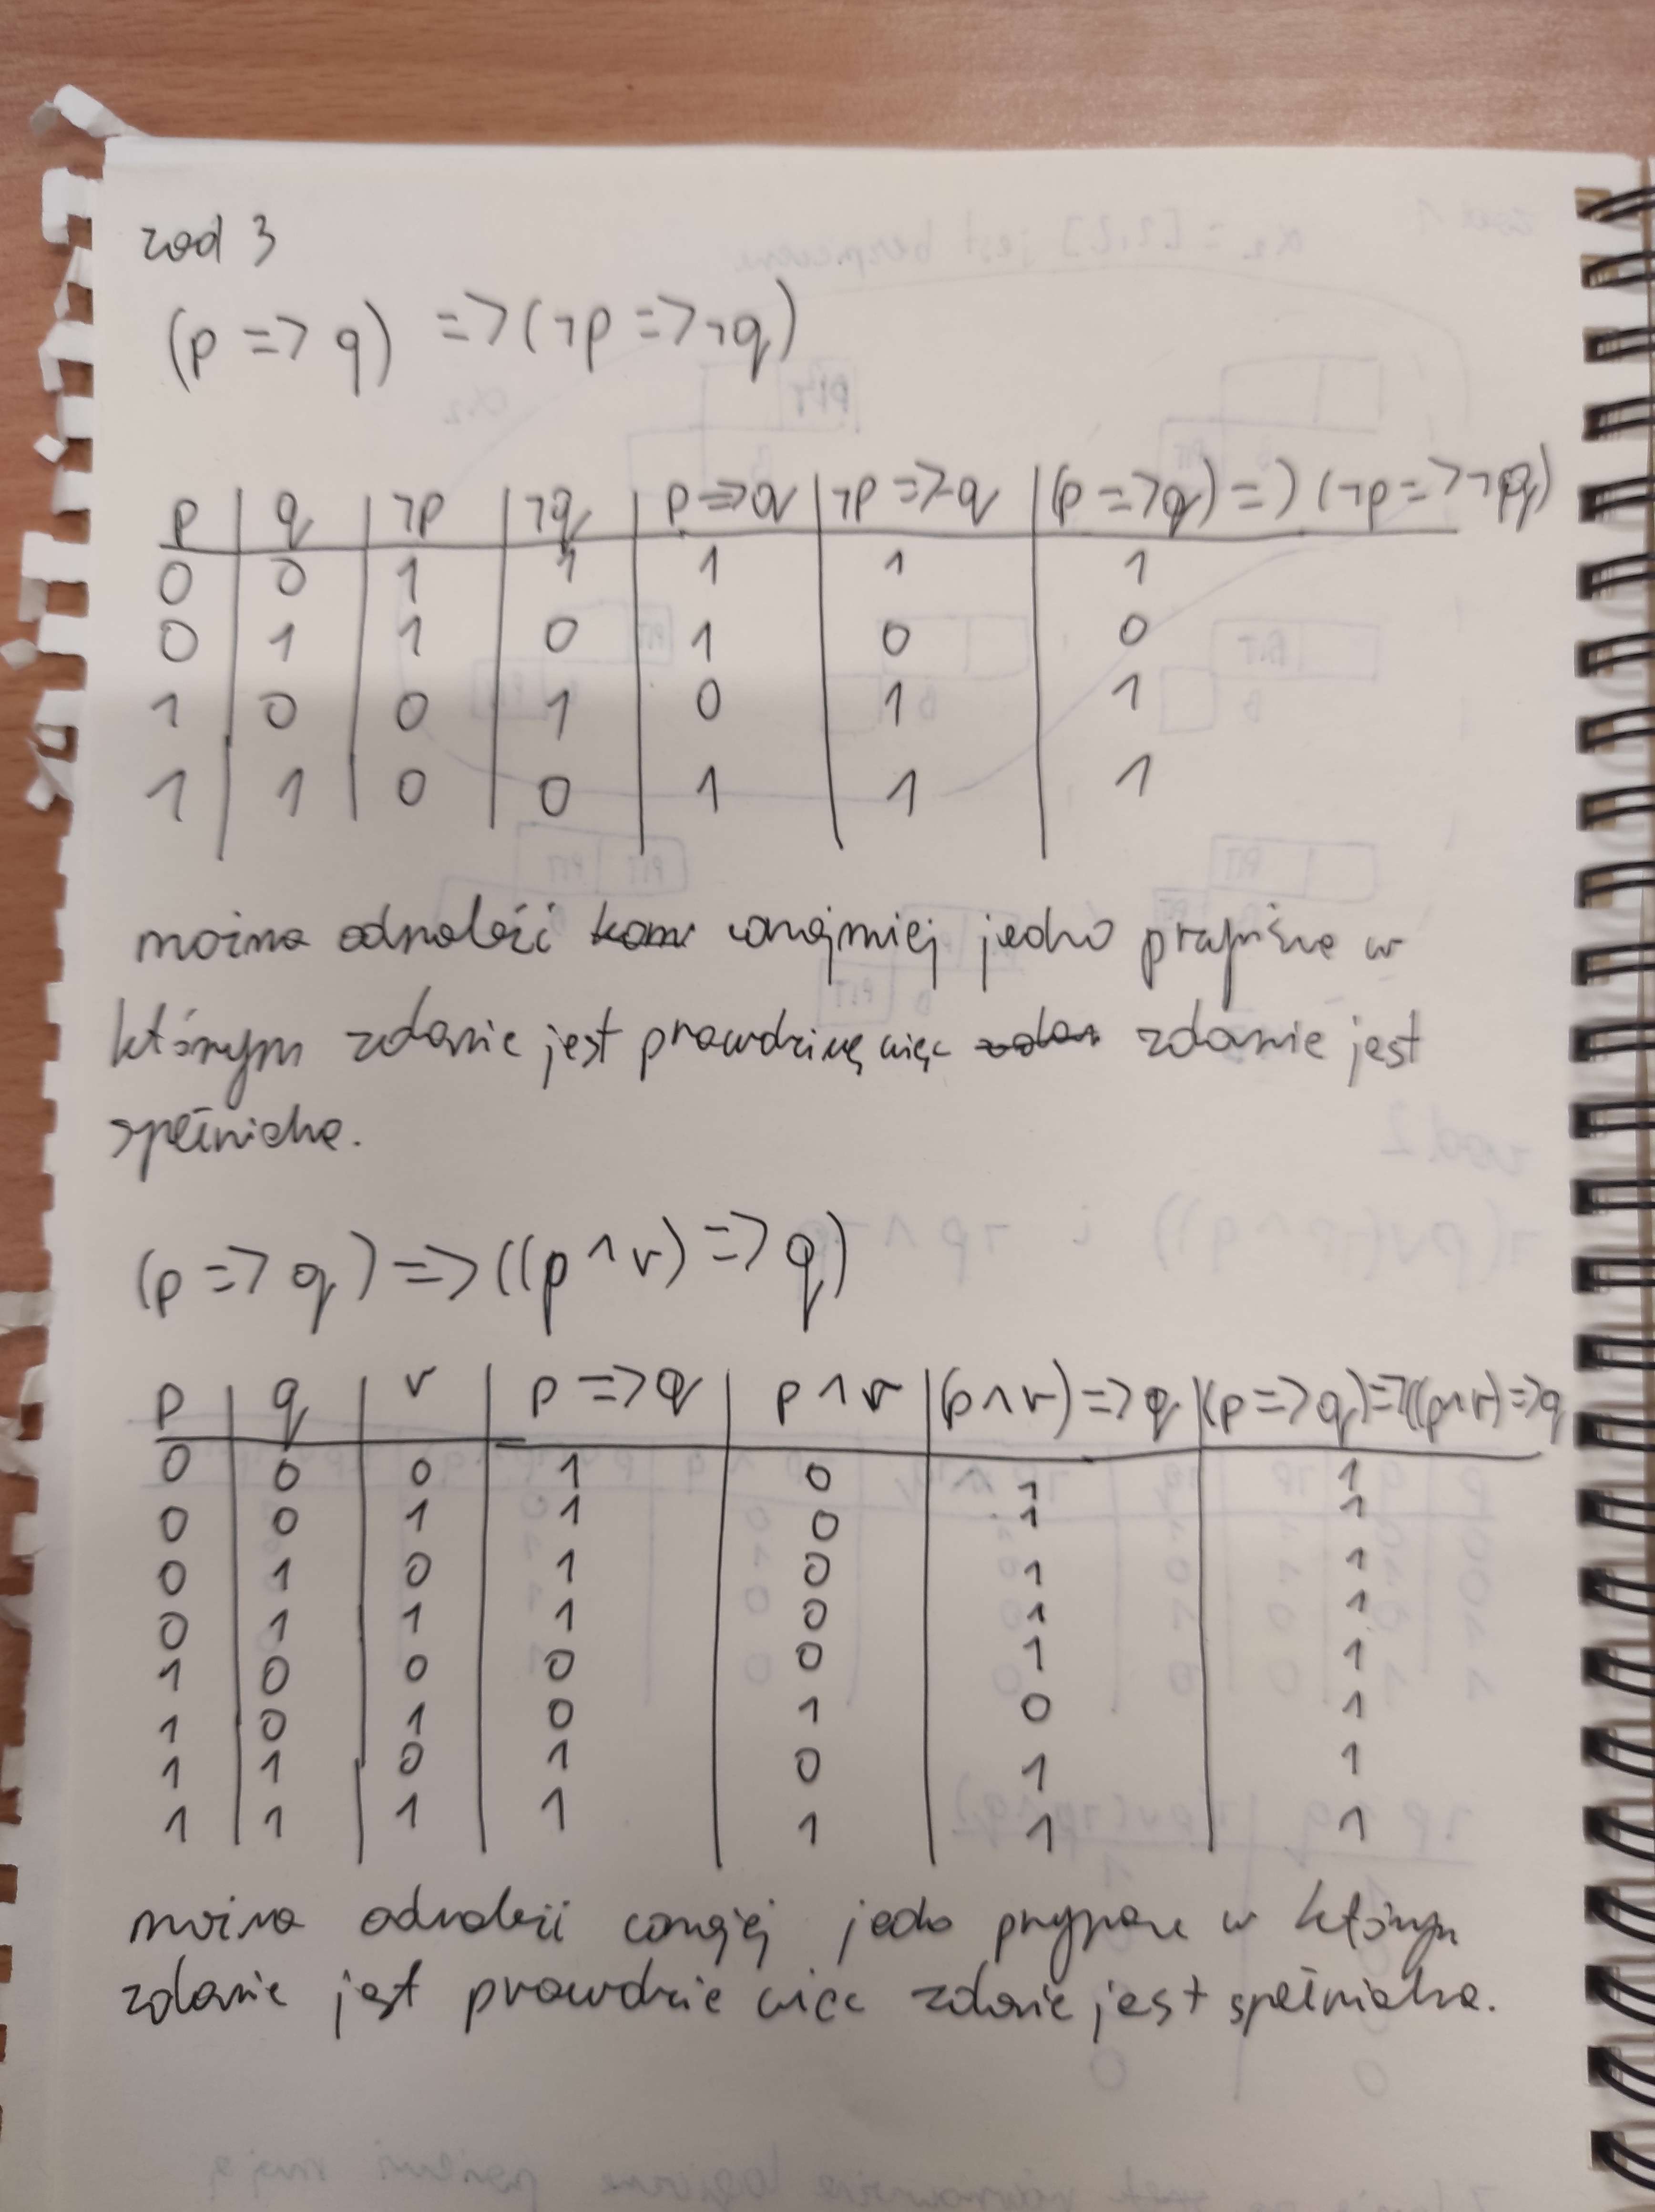 zad 3
(p => q) => (¬p => ¬q)
p | q | ¬p | ¬q | p => q | ¬p => ¬q | (p => q) => (¬p => ¬q)
0 | 0 | 1 | 1 | 1 | 1 | 1
0 | 1 | 1 | 0 | 1 | 0 | 0
1 | 0 | 0 | 1 | 0 | 1 | 1
1 | 1 | 0 | 0 | 1 | 1 | 1
można odnaleźć conajmiej jedno w
którym zdanie jest prawdziwe więc zdanie jest
spełnialne.
(p => q) => ((p ∧ r) => q)
p | q | r | p => q | p ∧ r | (p ∧ r) => q | (p => q) => ((p ∧ r) => q
0 | 0 | 0 | 1 | 0 | 1 | 1
0 | 0 | 1 | 1 | 0 | 1 | 1
0 | 1 | 0 | 1 | 0 | 1 | 1
0 | 1 | 1 | 1 | 0 | 1 | 1
1 | 0 | 0 | 0 | 0 | 1 | 1
1 | 0 | 1 | 0 | 1 | 0 | 1
1 | 1 | 0 | 1 | 0 | 1 | 1
1 | 1 | 1 | 1 | 1 | 1 | 1
można w którym
zdanie jest prawdzie więc zdanie jest spełnialne.